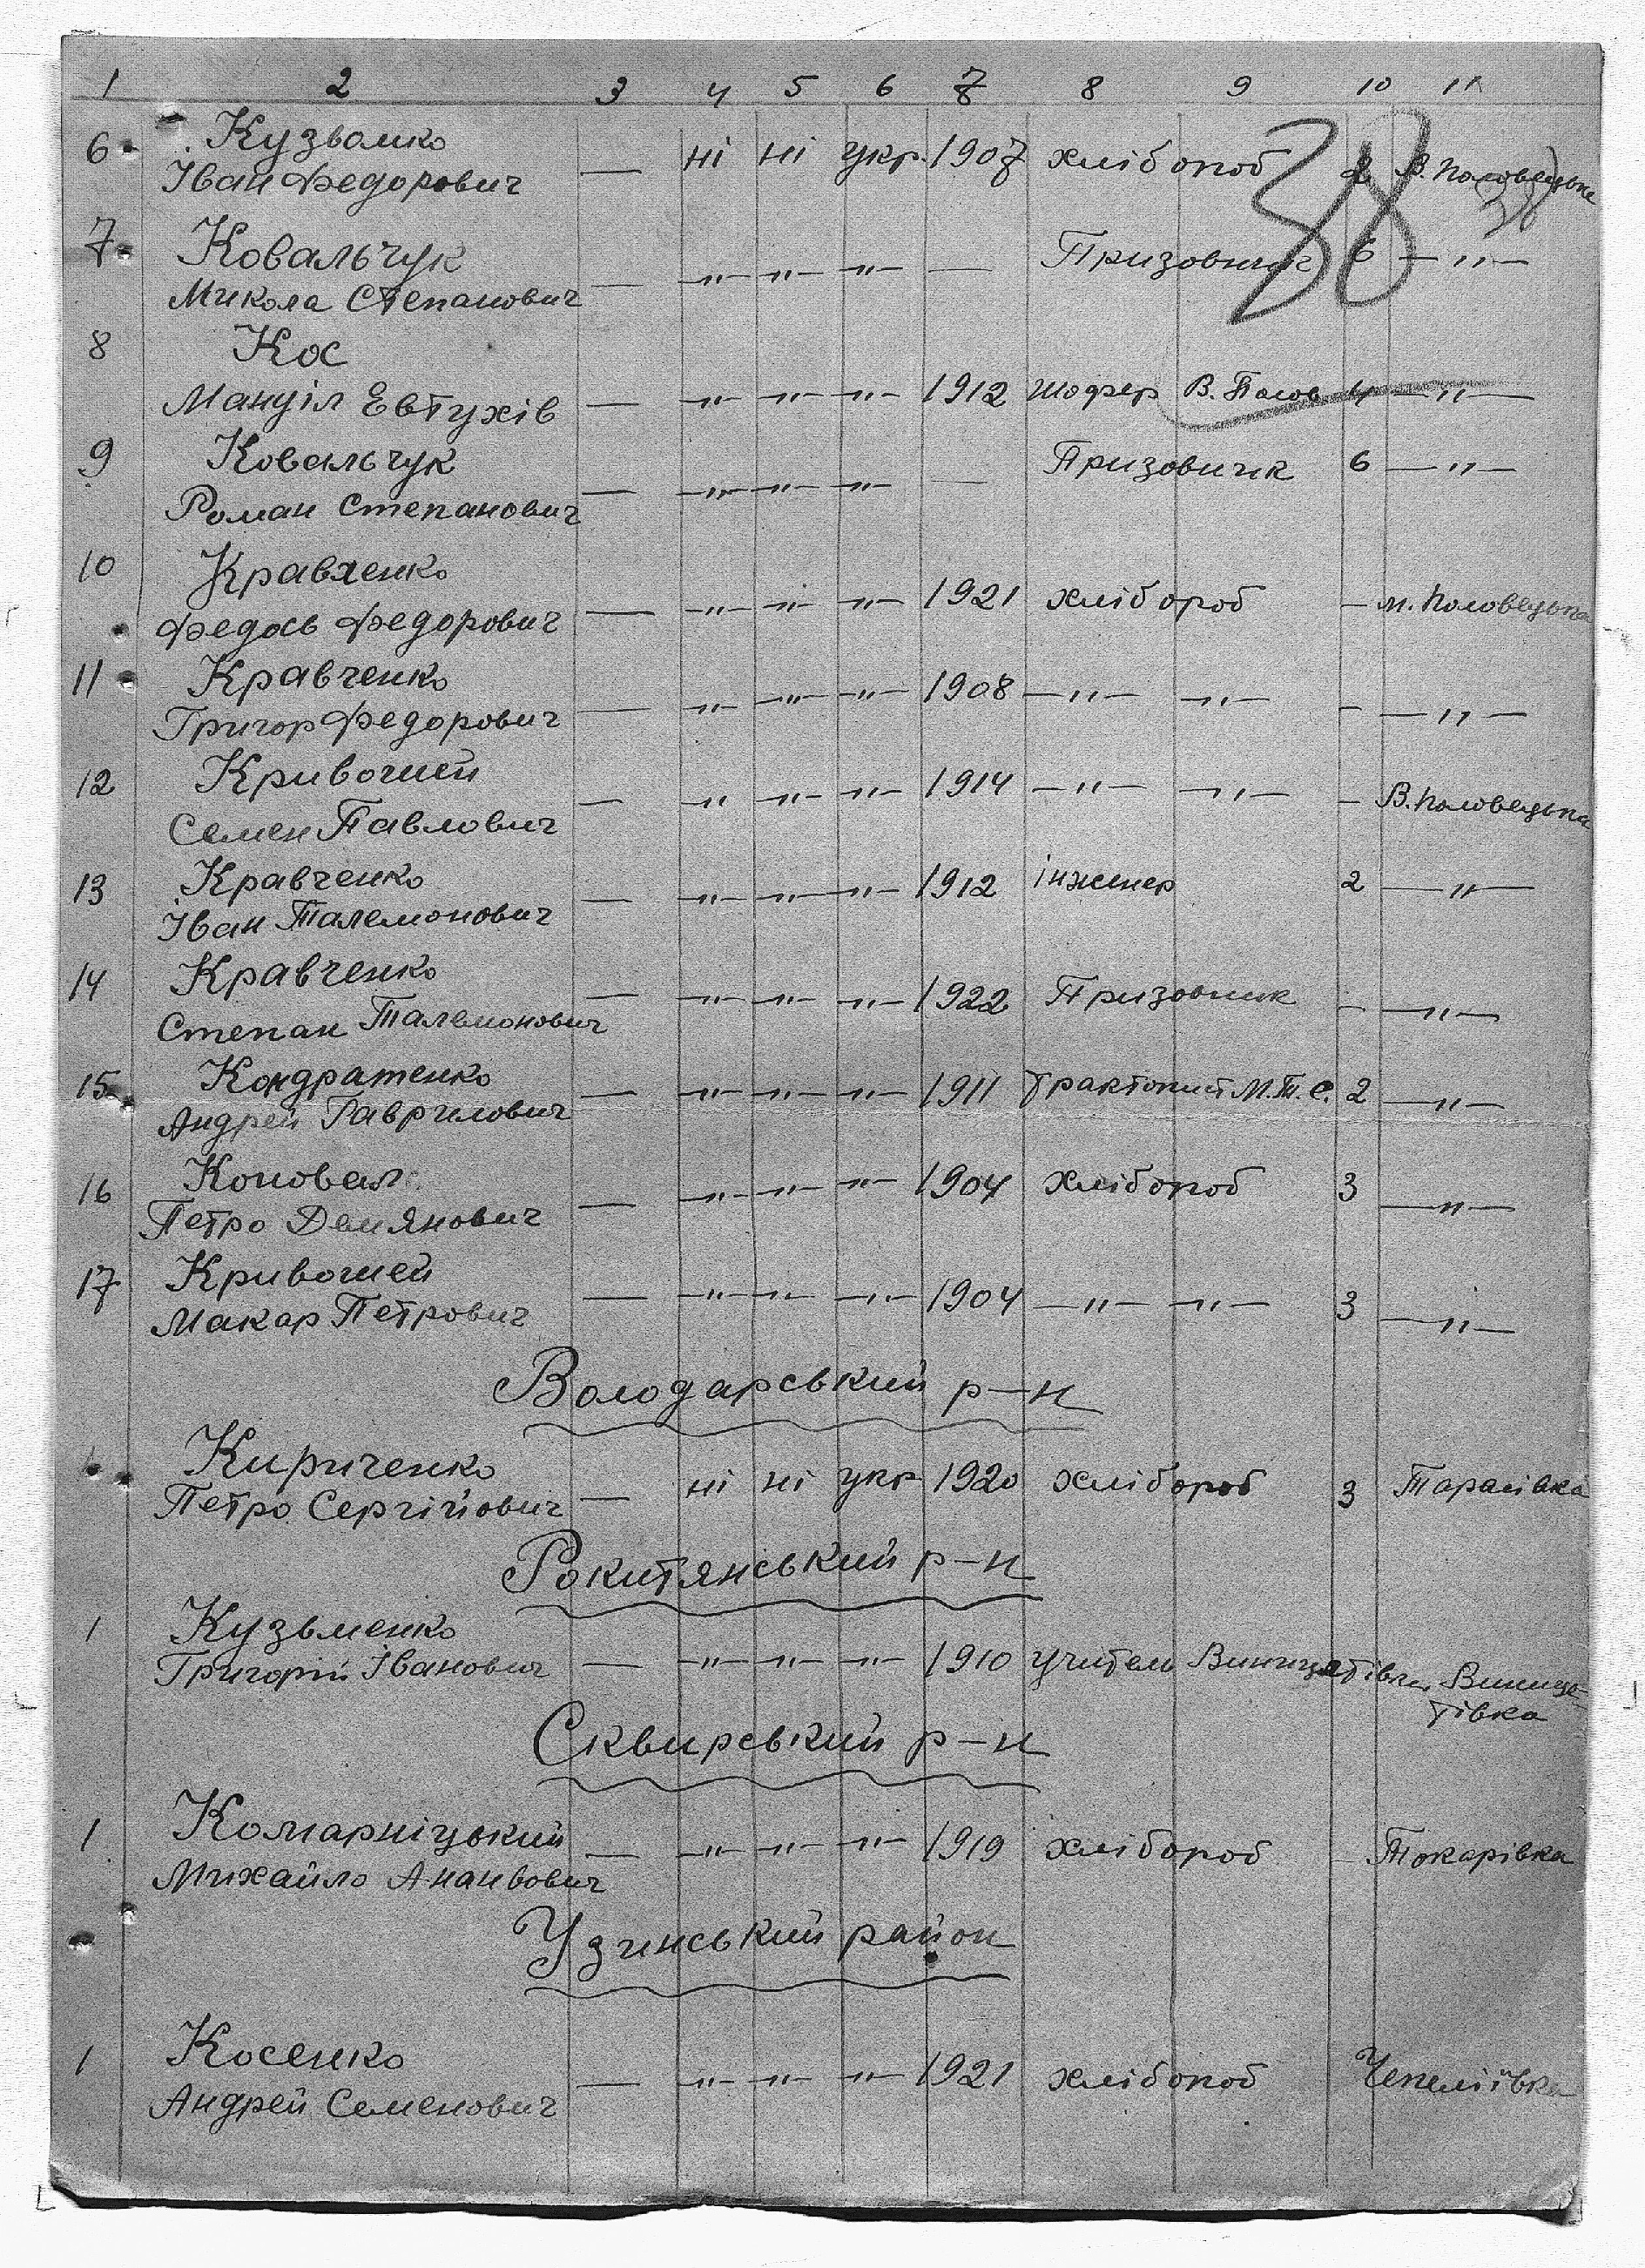 1 2 3 4 5 6 7 8 9 10 11
38
6. Кузвомко
Іван Федорович — ні ні укр. 1907 хлібороб 2 В. Половецька
7. Ковальчук
Микола Степанович — —"— —"— —"— — Призовник 6 —"—
8 Кос
Мануіл Евтухів — —"— —"— —"— 1912 шофер В. Полов 4 —"—
9 Ковальчук
Роман Степанович — —"— —"— —"— — Призовник 6 —"—
10 Кравченко
Федось Федорович — —"— —"— —"— 1921 хлібороб — м. Половецька
11 Кравченко
Григор Федорович — —"— —"— —"— 1908 —"— —"— — —"—
12 Кривошей
Семен Павлович — —"— —"— —"— 1914 —"— —"— — В. Половецька
13 Кравченко
Іван Талемонович — —"— —"— —"— 1912 інженер 2 —"—
14 Кравченко
Степан Талемонович — —"— —"— —"— 1922 Призовник — —"—
15 Кондратенко
Андрей Гаврилович — —"— —"— —"— 1911 Тракторист М.Т.С. 2 —"—
16 Коновал
Петро Демянович — —"— —"— —"— 1904 хлібороб 3 —"—
17 Кривошей
Макар Петрович — —"— —"— —"— 1904 —"— —"— 3 —"—
Володарський р-н
Кириченко
Петро Сергійович — ні ні укр 1920 хлібороб 3 Тарасівка
Рокитянський р-н
1 Кузьменко
Григорій Іванович — —"— —"— —"— 1910 учитель Винищетівка
Винище-
тівка
Сквирський р-н
1 Комарніцький
Михайло Ананвович — —"— —"— —"— 1919 хлібороб — Токарівка
Узинський район
1 Косенко
Андрей Семенович — —"— —"— —"— 1921 хлібороб Чепеліївка